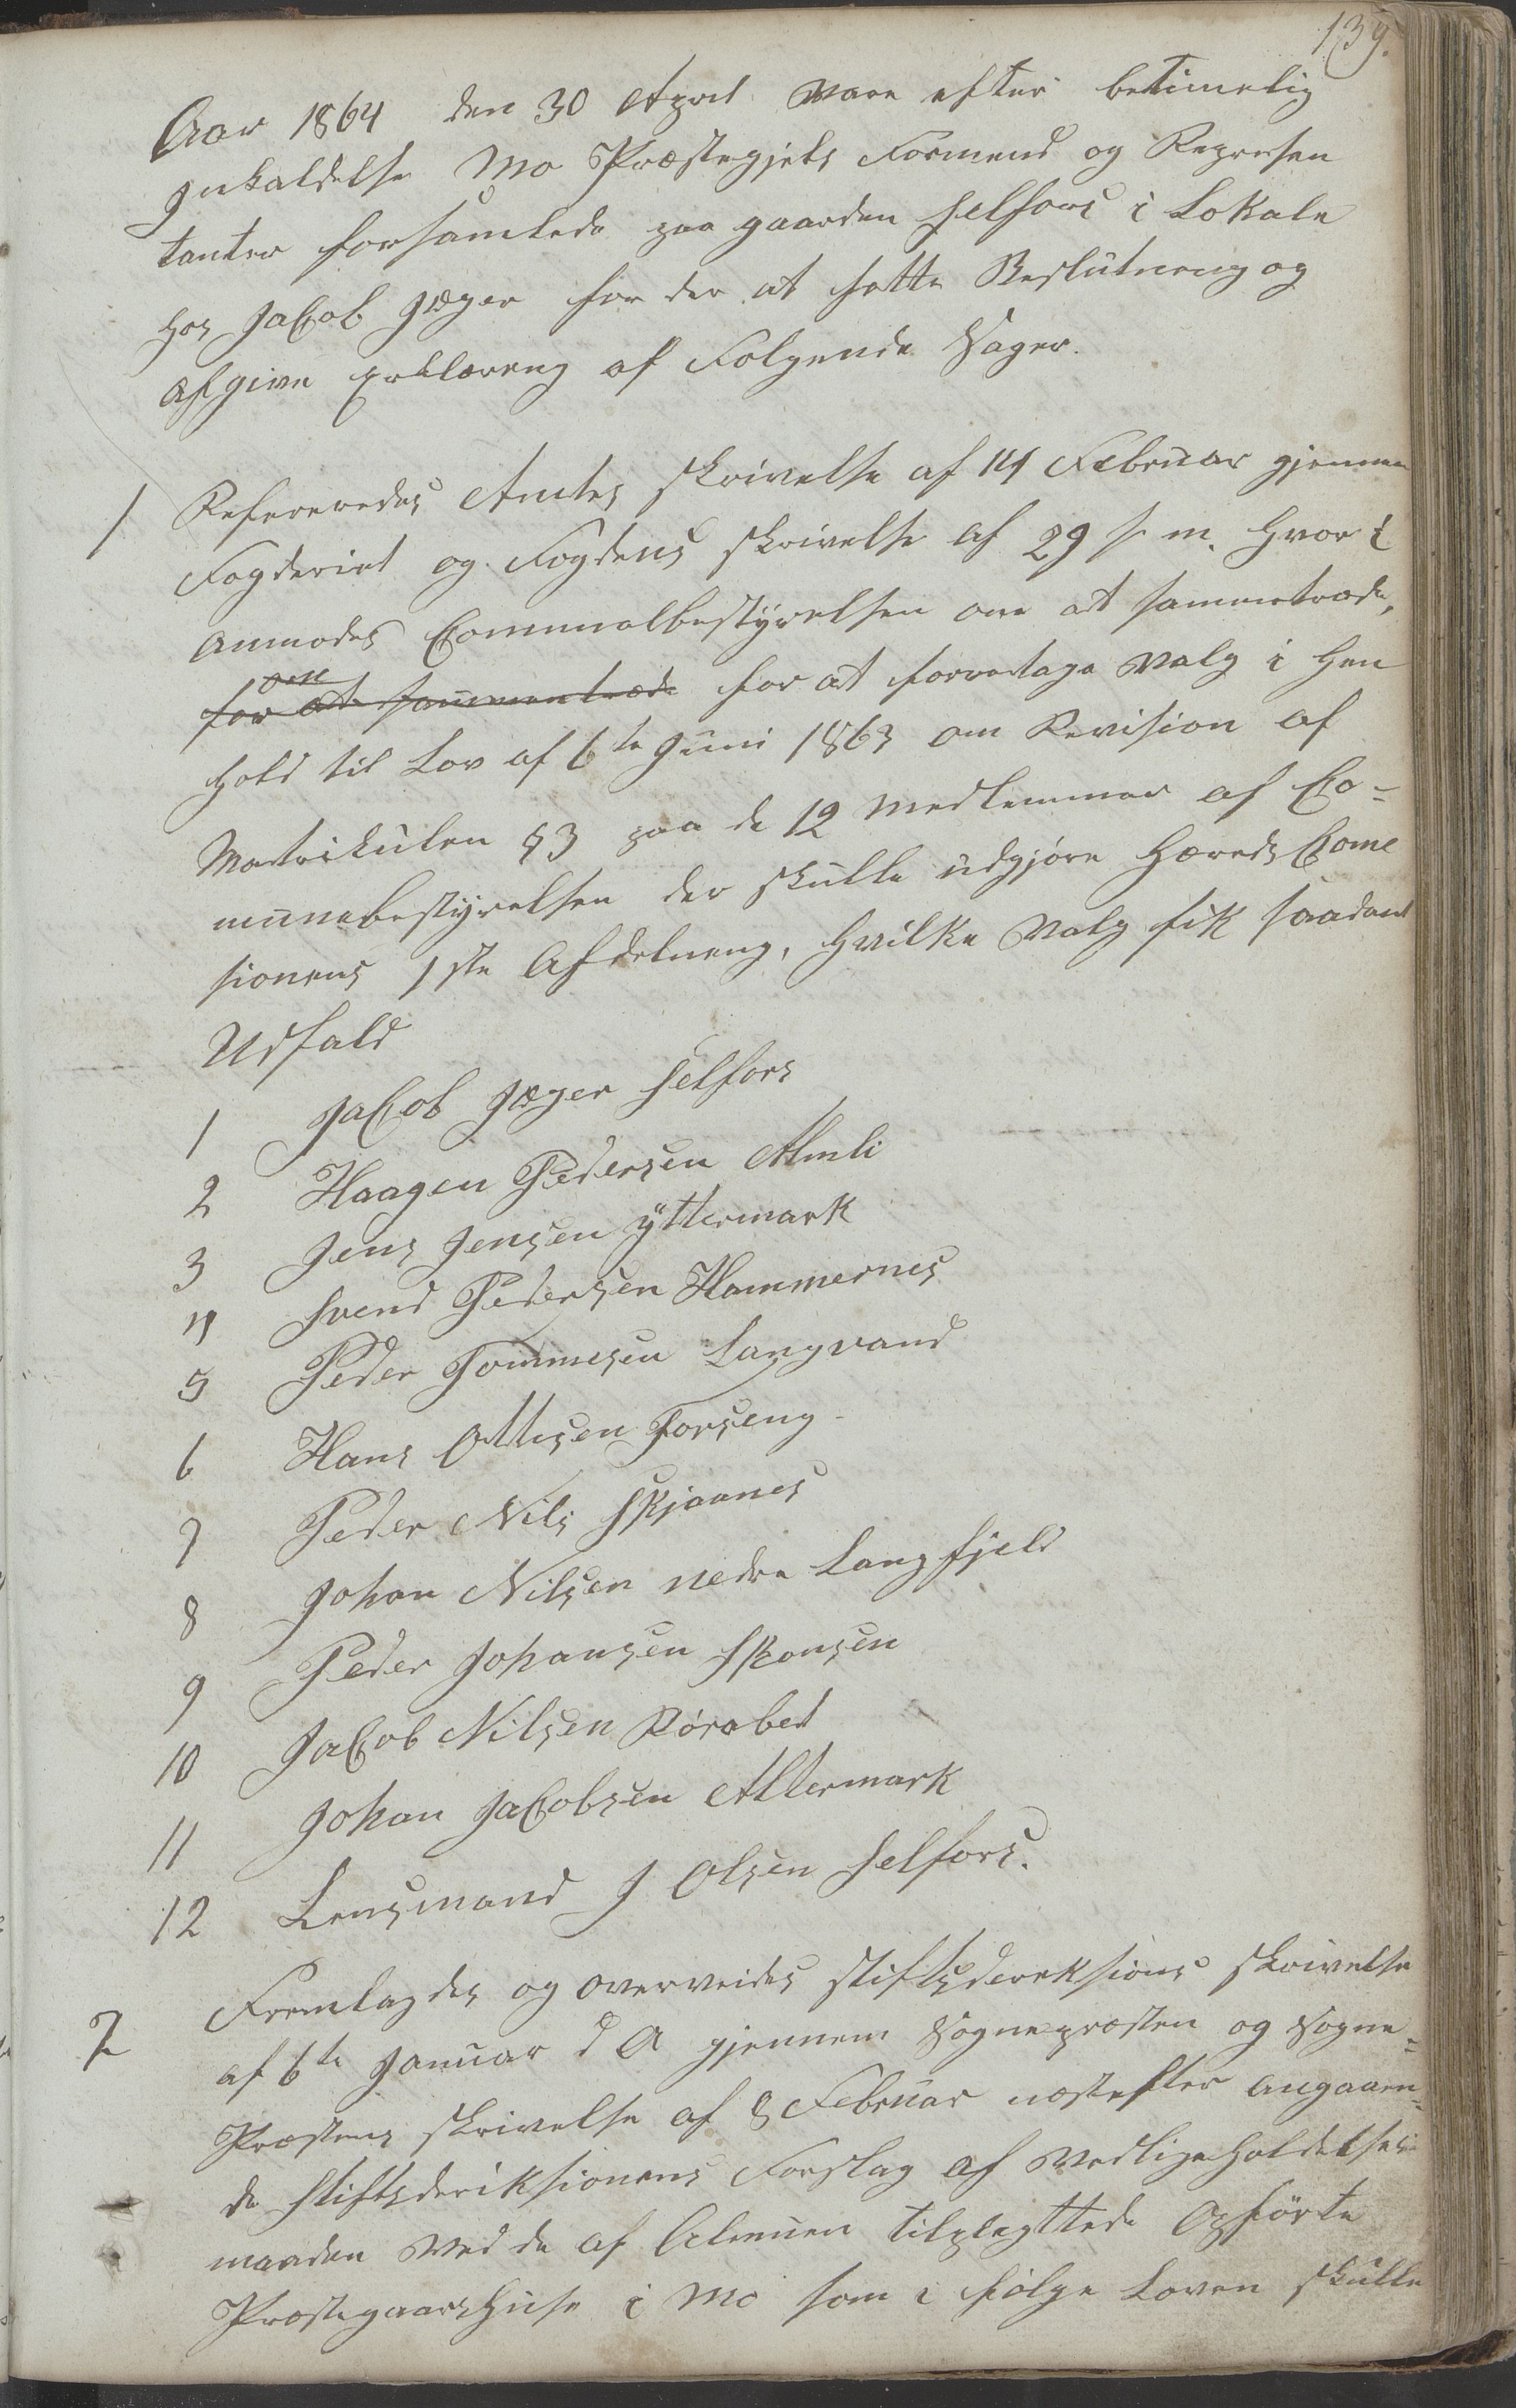 139.
Aar 1864 den 30 April vare efter betimelig
Inkaldelse Mo Præstegjels Formend og Represen
tanter forsamlede paa gaarden Selfors i Lokale
hos Jacob Jæger for der at fatte Beslutneng og
afgive Erklæreng af Følgende Sager.
1 Refereredes Amtes Skrivelse af 14 Februar gjennem
Fogderiet og Fogdens Skrivelse af 29 s. m. hvor i
anmodes Communalbestyrelsen om at sammetræde,
om
for at sammentræde for at foretage Valg i Hen
hold til Lov af 6te Juni 1863 om Revision af
Matrikulen § 3 paa de 12 Medlemmer af Co-
munebestyrelsen der skulle udgjøre Hereds Come
sionens 1ste Afdelneng, hvilke Valg fik saadant
Udfald
1 Jacob Jæger Selfors
2 Haagen Pedersen Almli
3 Jens Jensen Yttermark
4 Svend Pedersen Hammernes
5 Peder Tommesen Langvand
6 Hans Ottesen Forseng
7 Peder Nils Skjaanes
8 Johan Nilsen nedre Langfjeld
9 Peder Johansen Skonsen
10 Jacob Nilsen Rørabet
11 Johan Jacobsen Altermark
12 Lensmand J Olsen Selfors.
2 Fremlagdes og overveides Stiftsdereksions Skrivelse
af 6te Januar d A gjennem Sognepræsten og Sogne-
Præstens Skrivelse af 8 Februar næstefter angaaen-
de Stiftsderiksionens Forslag af Vedligeholdelses-
maaden Ved de af Almuen tilplegttede Opførte
Præstegaarshuse i Mo som i følge Loven skulle